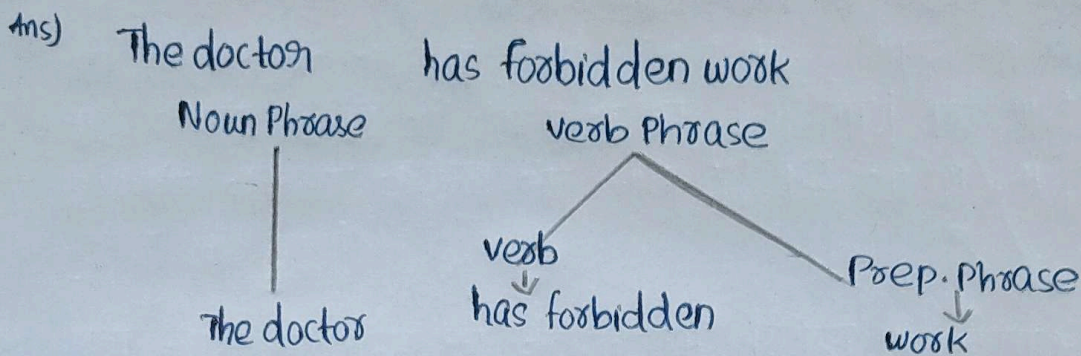 Ans) The doctor has forbidden work
Noun Phrase verb Phrase
verb Prep. Phrase
The doctor has forbidden work